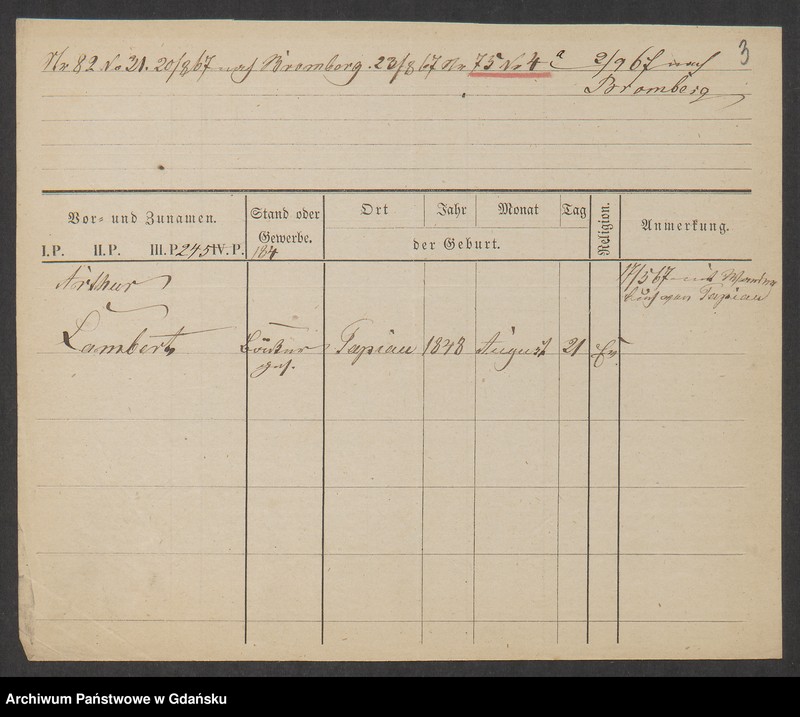 Nr 82 No 31. 20/8 67 nach Bromberg. 23/8 67 Nr 75 No 4 a 2/9 67 nach 3
Bromberg
Vor= und Zunamen.
I.P. II.P. III.P. 245 IV.P.
Stand oder
Gewerbe.
184
Ort Jahr Monat Tag
der Geburt.
Religion.
Anmerkung.
Arthur
17/5 67 mit
buch von Tapiau
Lambert Böttcher Tapiau 1848 August 21 Ev.
ges.
Archiwum Państwowe w Gdańsku